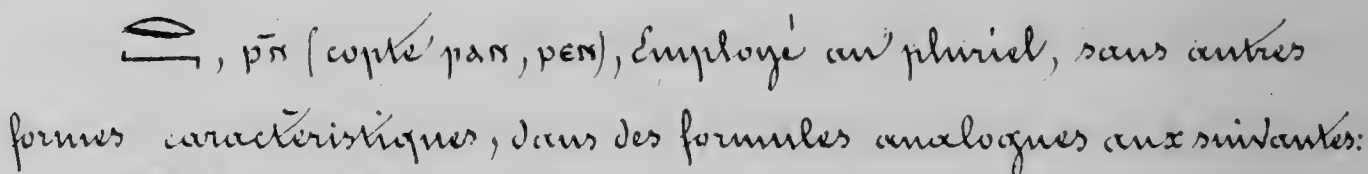 𓂋𓈖, ⲣⲛ̄ (copte ⲣⲁⲛ, ⲣⲉⲛ), Employé au pluriel, sans autres
formes caractéristiques, dans des formules analogues aux suivantes: